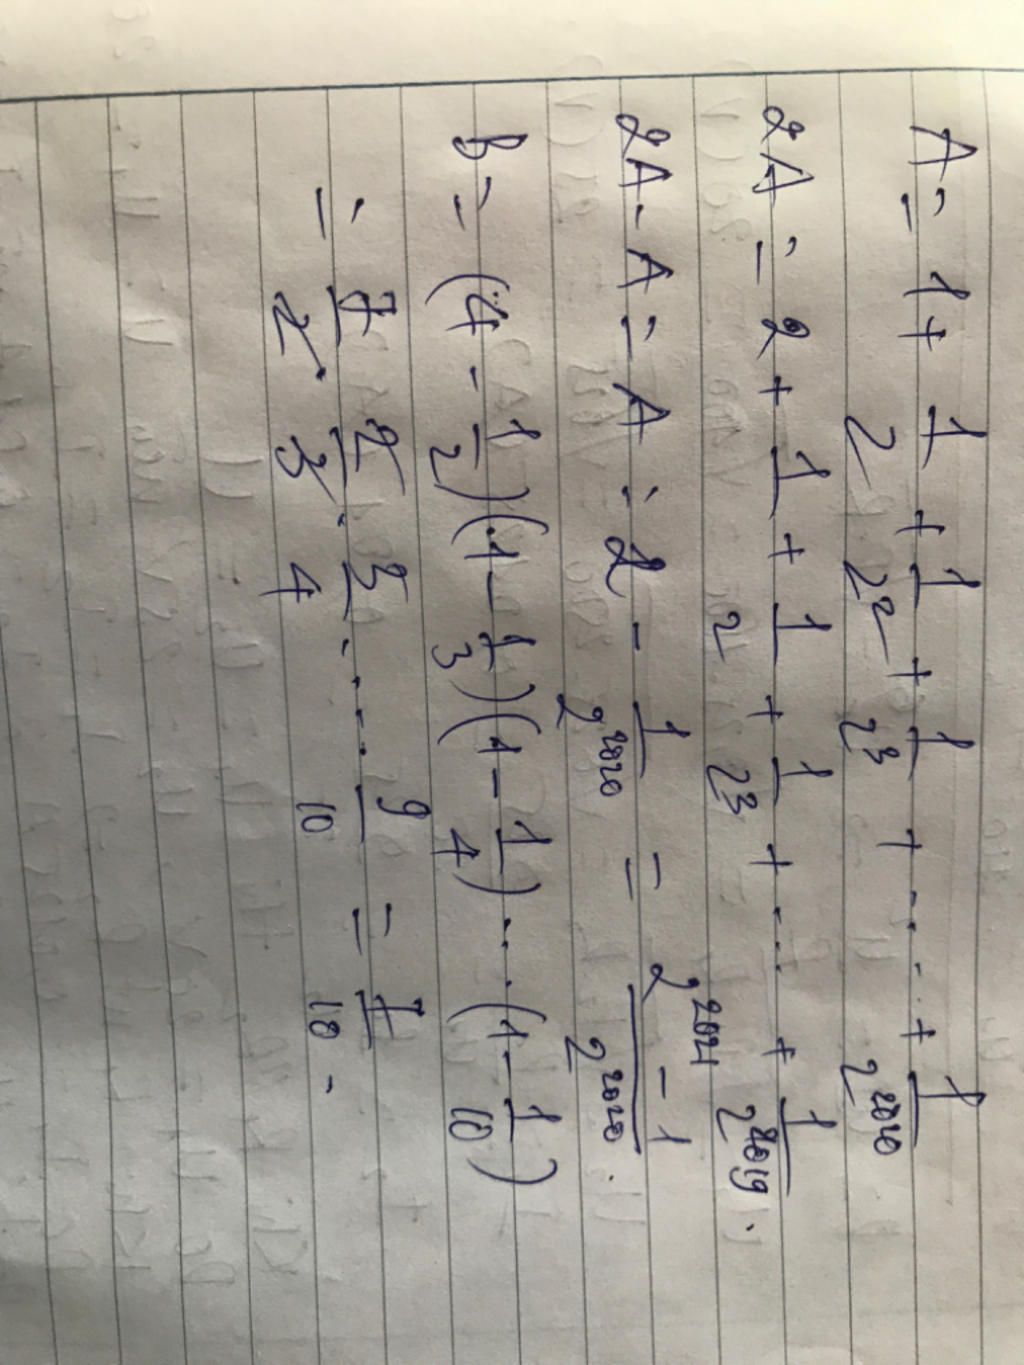 A = 1 + 1/2 + 1/2² + 1/2³ + .... + 1/2²⁰²⁰
2A = 2 + 1 + 1/2 + 1/2³ + .... + 1/2²⁰¹⁹.
2A - A = A = 2 - 1/2²⁰²⁰ = (2²⁰²¹ - 1)/2²⁰²⁰.
B = (1 - 1/2)(1 - 1/3)(1 - 1/4) .... (1 - 1/10)
= 1/2 . 2/3 . 3/4 . .... 9/10 = 1/10.